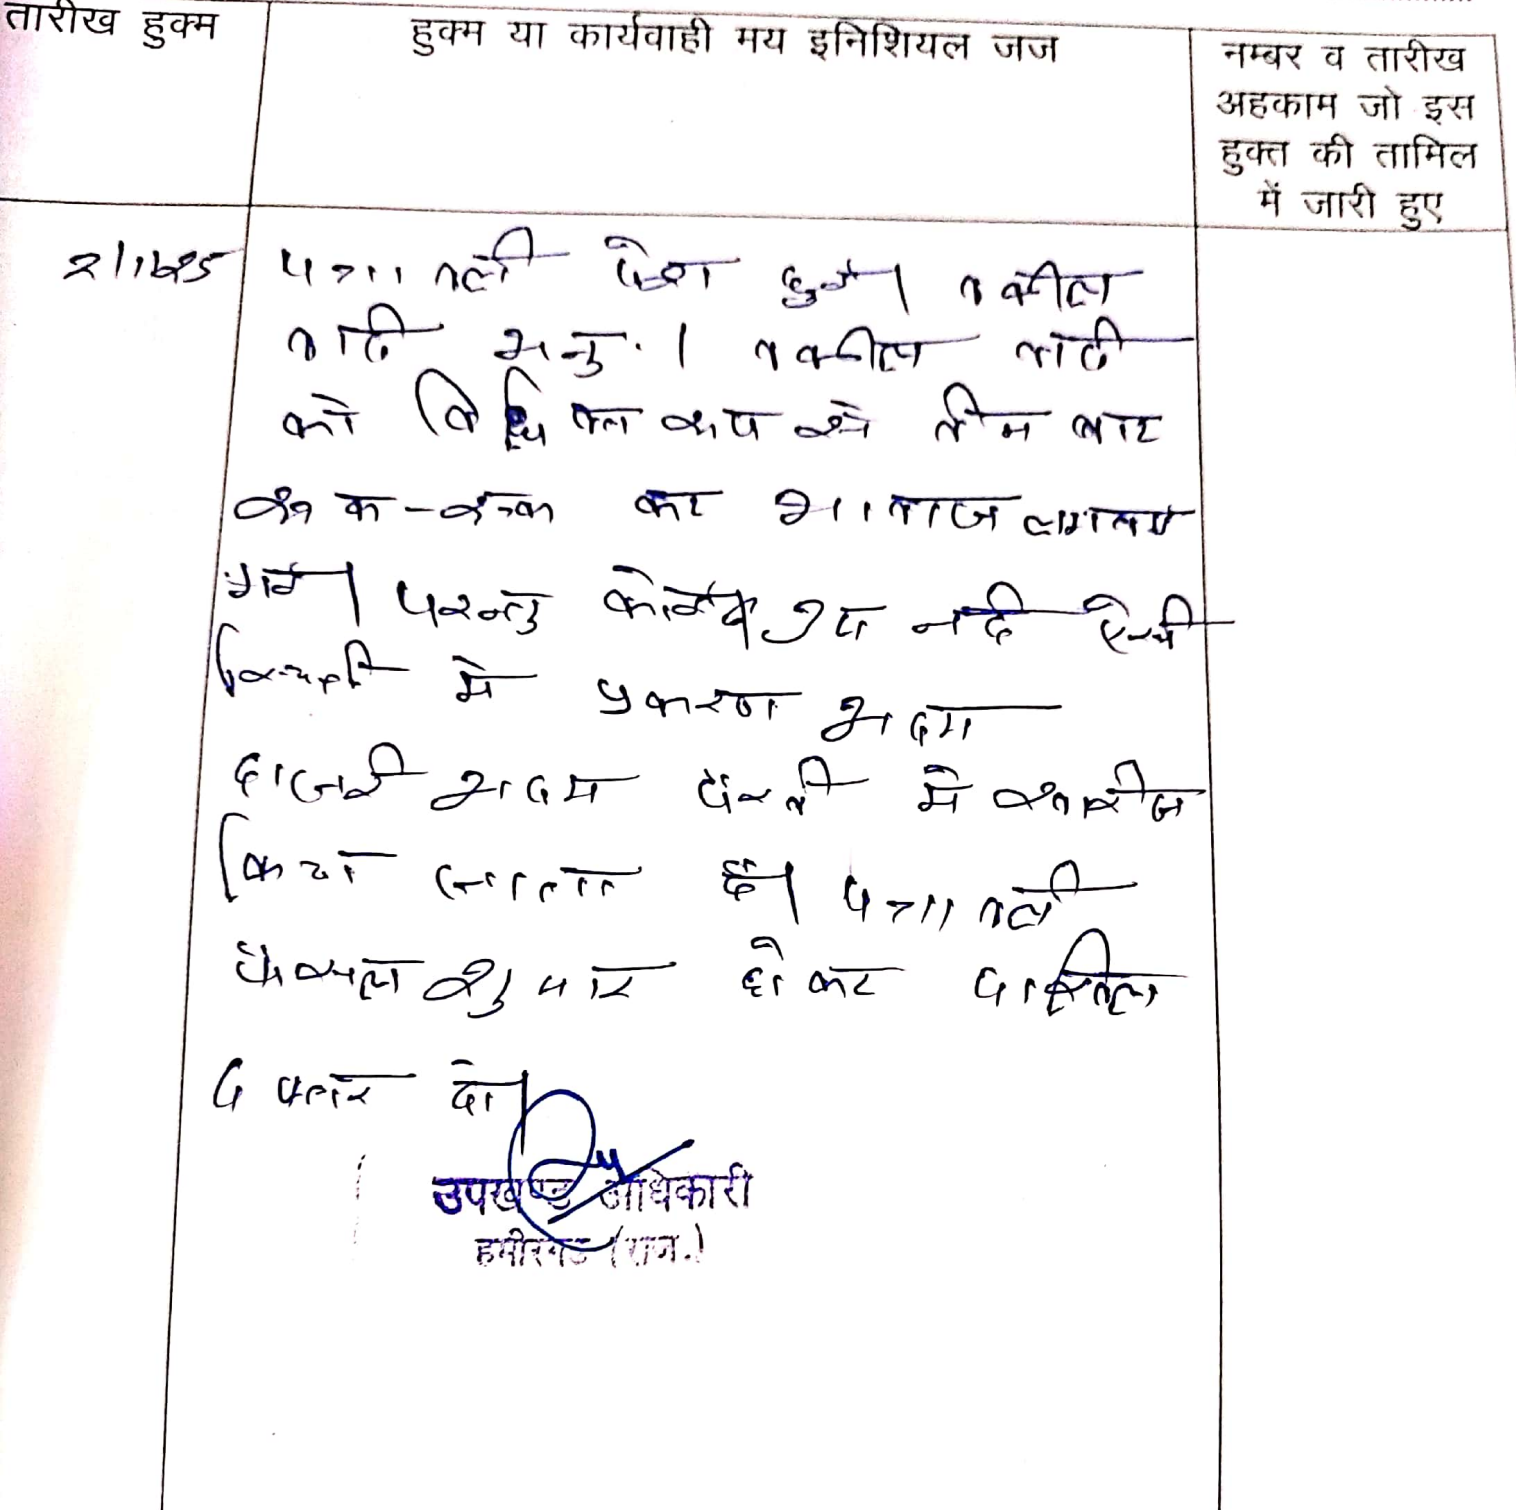 तारीख हुक्म
हुक्म या कार्यवाही मय इनिशियल जज
नम्बर व तारीख
अहकाम जो इस
हुक्त की तामिल
में जारी हुए
पत्रावली पेश हुई। वकील
वादी अनु.। वकील वादी
को विधिवत रूप से तीन बार
रूक-रूक कर आवाज लगवाई
गई। परन्तु कोई उप नही ऐसी
स्थिति में प्रकरण अदम
हाजरी अदम पैरवी में खारीज
किया जाता है। पत्रावली
फैसल शुमार होकर दाखिल
दफ्तर हो।
उपखण्ड अधिकारी
हमीरगढ (राज.)